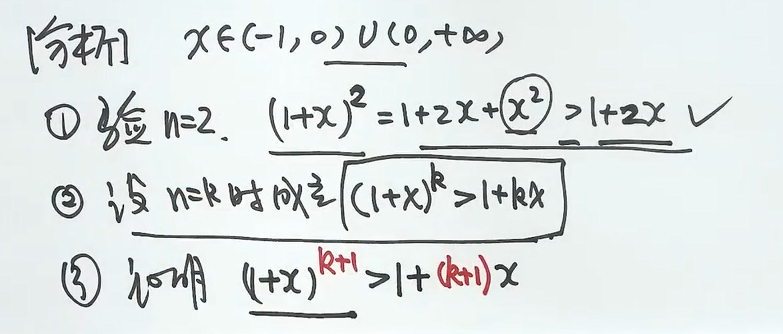 [分析] x∈(-1,0)∪(0,+∞)
① 验n=2. (1+x)²=1+2x+x²>1+2x ✓
② 设n=k时成立 (1+x)ᵏ>1+kx
③ 证明 (1+x)ᵏ⁺¹>1+(k+1)x